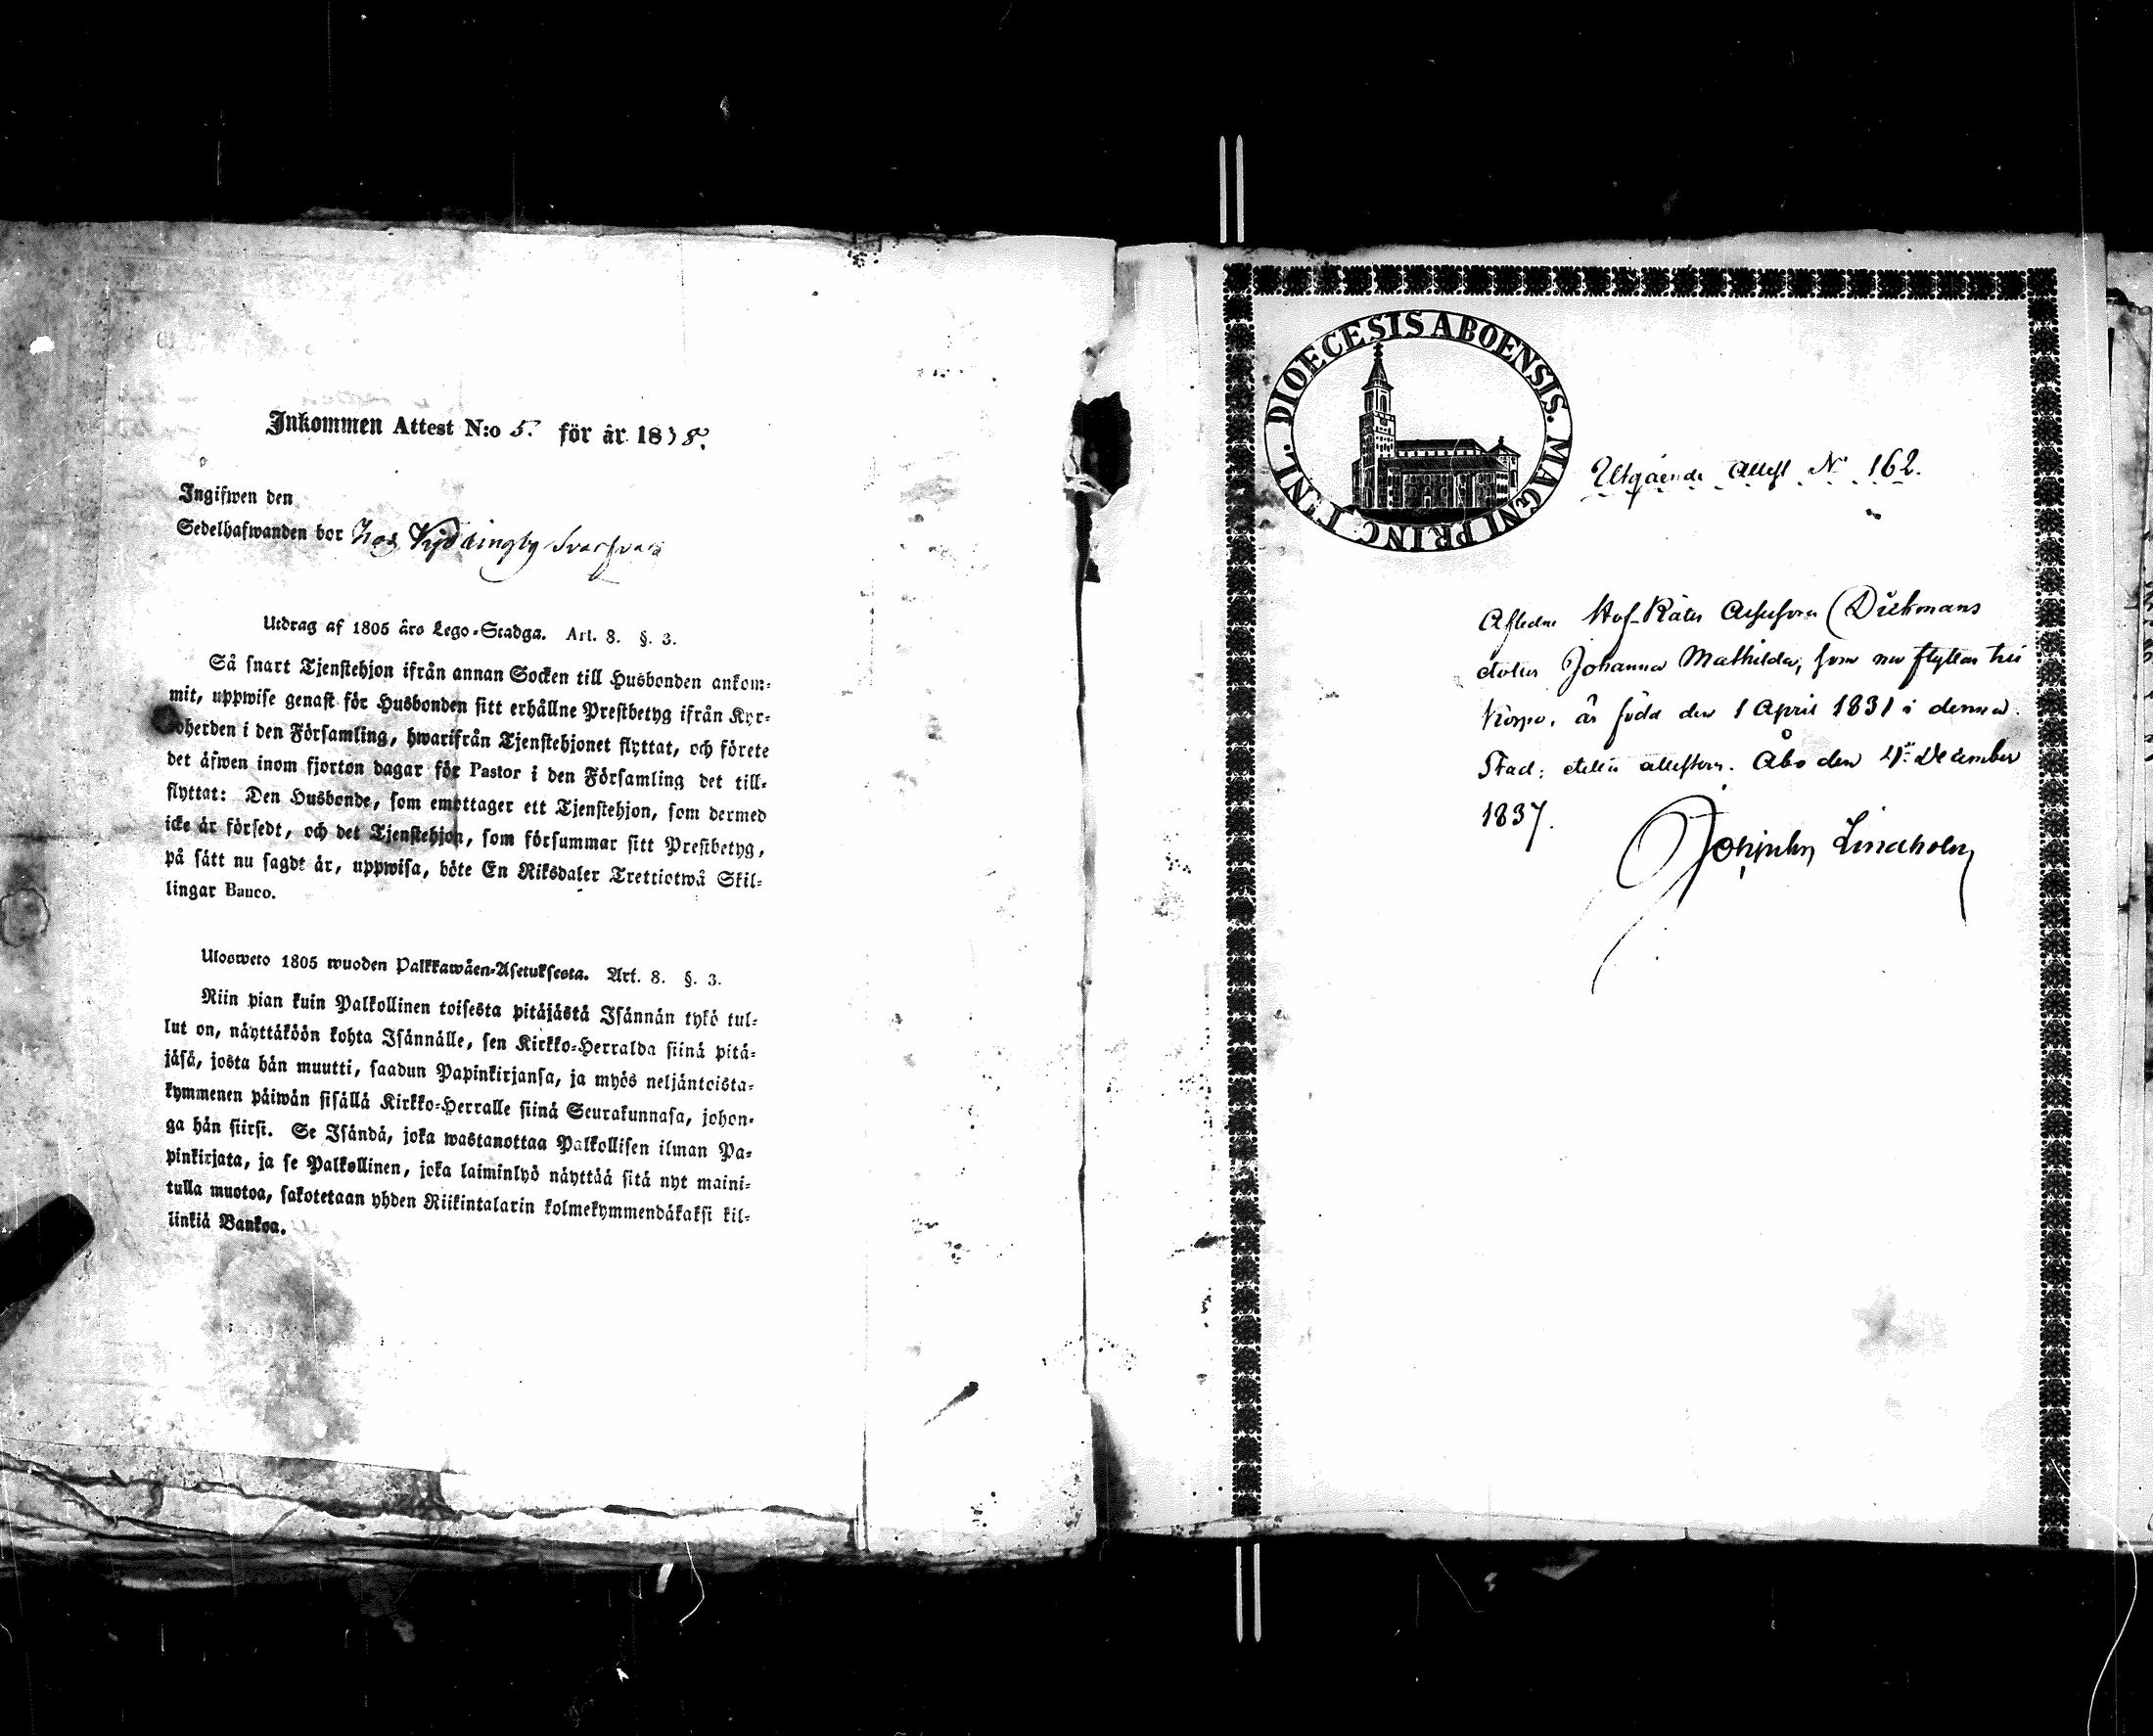 Inkommen Attest N:o 5. för år 1838.
Ingifwen den
Sedelhafwanden bor hos Vyddingby
Utdrag af 1805 års Lego-Stadga. Art. 8. §. 3.
Så snart Tjenstehjon ifrån annan Socken till Husbonden ankom-
mit, uppwise genast för Husbonden sitt erhållne Prestbetyg ifrån Kyr-
koherden i den Församling, hwarifrån Tjenstehjonet flyttat, och förete
det äfwen inom fjorton dagar för Pastor i den Församling det till-
flyttat: Den Husbonde, som emottager ett Tjenstehjon, som dermed
icke är försedt, och det Tjenstehjon, som försummar sitt Prestbetyg,
på sätt nu sagdt är, uppwisa, böte En Riksdaler Trettiotwå Skil-
lingar Banco.
Ulosweto 1805 wuoden Palkkawäen-Asetuksesta. Art. 8. §. 3.
Niin pian kuin Palkollinen toisesta pitäjästä Isännän tykö tul-
lut on, näyttäköön kohta Isännälle, sen Kirkko-Herralda siinä pitä-
jäsä, josta hän muutti, saadun Papinkirjansa, ja myös neljäntoista-
kymmenen päiwän sisällä Kirkko-Herralle siinä Seurakunnasa, johon-
ga hän siirsi. Se Isändä, joka wastanottaa Palkollisen ilman Pa-
pinkirjata, ja se Palkollinen, joka laiminlyö näyttää sitä nyt maini-
tulla muotoa, sakotetaan yhden Riikintalarin kolmekymmendäkaksi kil-
linkiä Bankoa.
DIOECESIS ABOENSIS. MAGNI PRINC. FINL.
Utgående Attest N° 162.
Afledne Hof-Rätts Assessoren Dickmans
dotter Johanna Mathilda, som nu flyttar till
Korpo, är född den 1 April 1831 i denna
Stad; attesteras. Åbo den 4 December
1837.
Lindholm